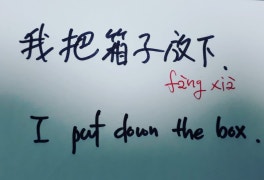 我把箱子放下.
fàng xià
I put down the box.